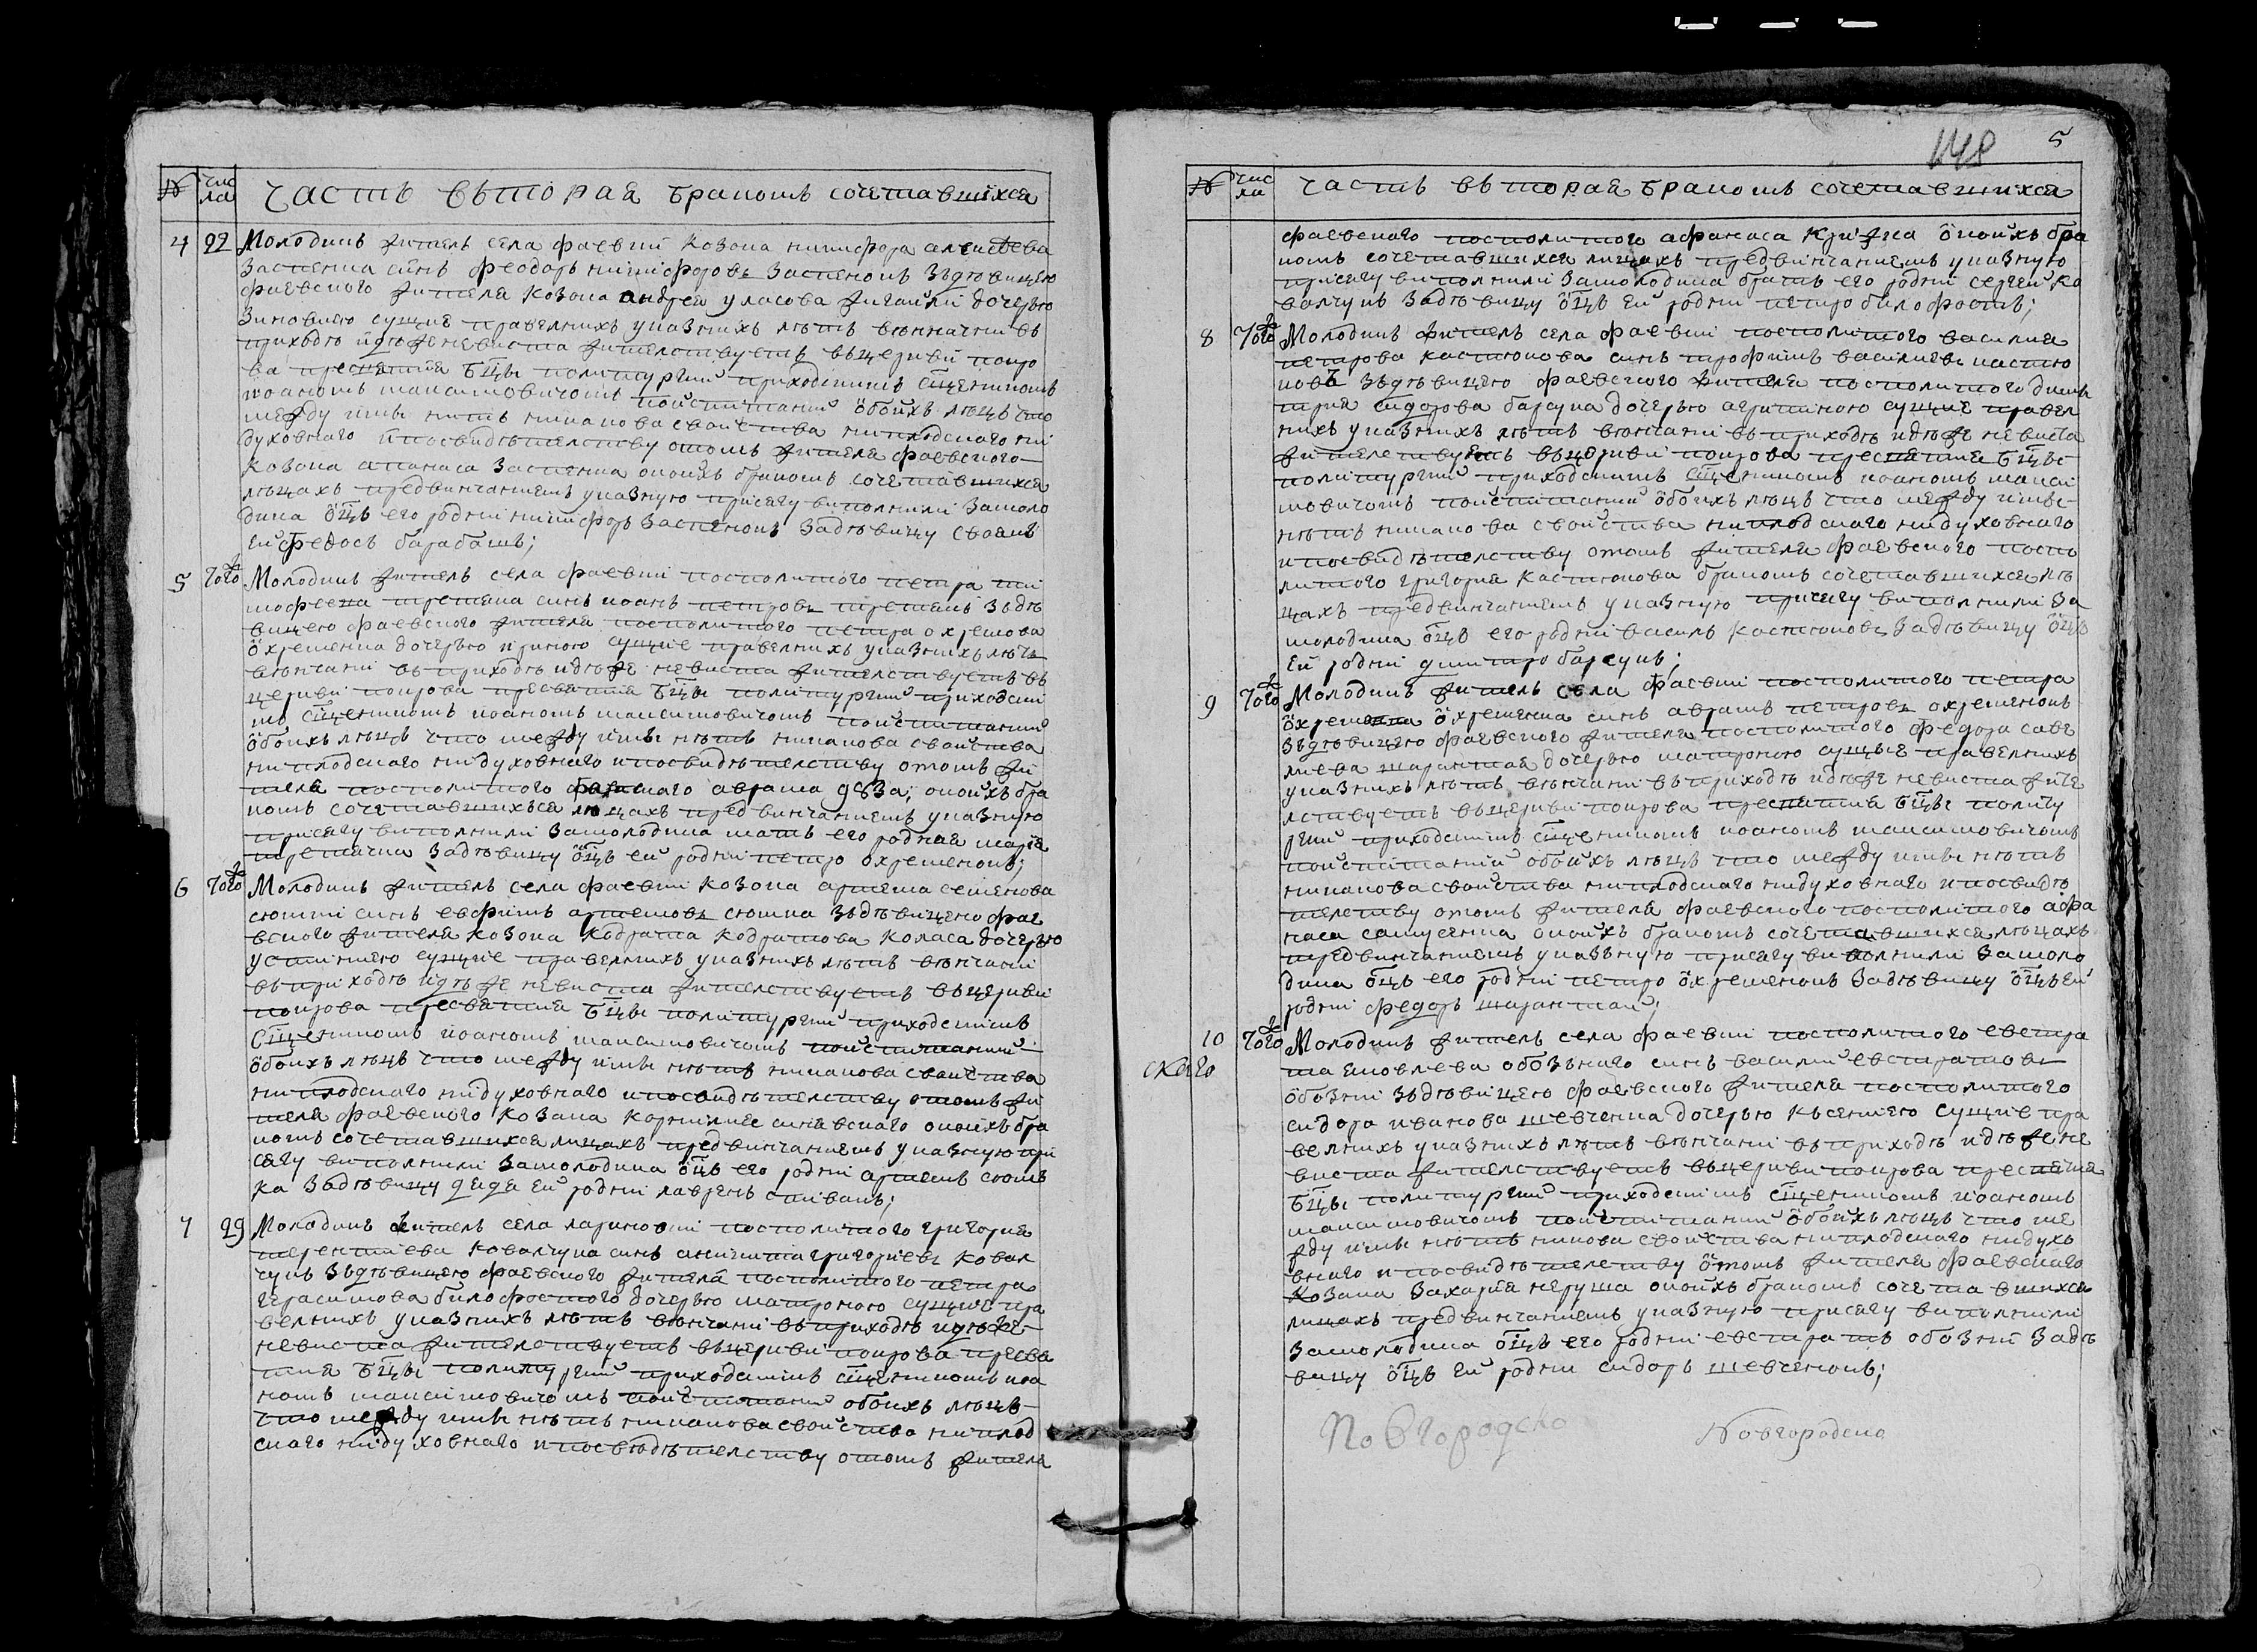 № чис ла часть вьторая бракомъ сочетавшихся
4 22 Молодикъ житель села фаевки козака никифора алексѣева
Заспенка синь феодоръ никифоровъ Заспенокъ Зъдѣвицею
фаевского жителя козака андрея уласова жигайли дочерью
Зиновиею сущие правелнихъ указнихъ лѣтъ венчани въ
приходѣ идѣже невиста жителствуетъ въцеркви покро
ва пресвятия бцы политургии приходскимъ сщенникомъ
иоаномъ максимовичомъ поиспитании обоихъ лѣцъ что
между ими нитъ никакова свойства никлодскаго ни
духовнаго ипосвидѣтелству отомъ жителя фаевского
козака апанаса Заспенка оноихъ бракомъ сочетавшихся
лѣцахъ предвинчаниемъ указную присягу виполнили Замоло
дика оцъ его родни никифоръ Заспенокъ Задѣвицу
ей федосъ барабашъ;
5 Тогож Молодикъ житель села фаевки посполитого петра ти
мофеева третяка синь иоанъ петровъ третякъ Зъдѣ
вицею фаевского жителя посполитого петра охремова
охременка дочерью ириною сущие правелнихъ указнихъ лѣтъ
вѣнчани въ приходѣ идѣже невиста жителствуетъ въ
церкви покрова пресвятия бцы политургии приходски
мъ сщенникомъ иоаномъ максимовичомъ поиспитании
обоихъ лѣцъ что между ими нѣтъ никакова свойства
никлодскаго нидуховнаго ипосвидѣтелству отомъ жи
теля посполитого аврама оноихъ бра
комъ сочетавшихъся лѣцахъ предвинчаниемъ указную
присягу виполнили Замолодика мать его родная марія
третячка Задѣвицу оцъ ей родни петро охременокъ;
6 Тогож Молодикъ житель села фаевки козака артема семенова
сюткі синь евфимъ артемовъ сютка Зъдѣвицею фае
вского жителя козака кодрата кодратова коласа дочерью
устиниею сущие правелнихъ указнихъ лѣтъ вѣнчани
въприходѣ идѣже невиста жителствуетъ въцеркви
покрова пресвятия бцы политургии приходскимъ
сщенникомъ иоаномъ максимовичомъ поиспитании
обоихъ лѣцъ что между ими нѣтъ никакова свойства
никлодскаго нидуховнаго ипосвидѣтелству отомъ жи
теля фаевского козака оноихъ бра
комъ сочетавшихся лицахъ предвинчаниемъ указную при
сягу виполнили Замолодика оцъ его родни артемъ сют
ка Задѣвицу дядя ей родни лавренъ
7 29 Молодикъ житель села ларинювки посполитого григория
терентиева ковалчука синь никита григориевъ ковал
чукъ Зъдѣвицею фаевского жителя посполитого петра
герасимова билофостого дочерью матроною сущие пра
велнихъ указнихъ лѣтъ вѣнчани въприходѣ идѣже
невиста жителствуетъ въцеркви покрова пресвя
тия бцы политургии приходскимъ сщенникомъ иоа
номъ максимовичомъ поиспитании обоихъ лѣцъ
что между ими нѣтъ никакова свойства никлод
скаго нидуховнаго ипосвѣдѣтелству отомъ жителя
148 5
№ чис ла часть вьторая бракомъ сочетавшихся
фаевского посполитого афанаса оноихъ бра
комъ сочетавшихся лицахъ предвинчаниемъ указную
присягу виполнили Замолодика братъ его родни сергей ко
валчукъ Задѣвицу оцъ ей родни петро билофостъ;
8 Тогож Молодикъ житель села фаевки посполитого василия
петрова костюкова синь трофимъ василиевъ костю
ковъ Зъдѣвицею фаевского жителя посполитого дими
трия сидорова барсука дочерью агрипиною сущие правел
нихъ указнихъ лѣтъ вѣнчани въприходѣ идѣже невиста
жителствуетъ въцеркви покрова пресвятия бцы
политургии приходскимъ сщенникомъ иоаномъ макси
мовичомъ поиспитании обоихъ лѣцъ что между ими
нѣтъ никакова свойства никлодскаго нидуховнаго
ипосвидѣтелству отомъ жителя фаевского поспо
литого григория костюкова бракомъ сочетавшихся лѣ
цахъ предвинчаниемъ указную присягу виполнили За
молодика оцъ его родни василь костюковъ Задѣвицу оцъ
ей родни димитро барсукъ;
9 Тогож Молодикъ житель села фаевки посполитого петра
охремова охременка синь аврамъ петровъ охременокъ
Зъдѣвицею фаевского жителя посполитого федора саве
лиева шарамтая дочерью матроною сущые правелнихъ
указнихъ лѣтъ вѣнчани въприходѣ идѣже невиста жите
лствуетъ въцеркви покрова пресвятия бцы политу
ргии приходскимъ сщенникомъ иоаномъ максимовичомъ
поиспитании обоихъ лѣцъ что между ими нѣтъ
никакова свойства никлодскаго нидуховнаго ипосвидѣ
телству отомъ жителя фаевского посполитого афа
наса самусенка оноихъ бракомъ сочетавшихся лѣцахъ
предвинчаниемъ указъную присягу виполнили Замоло
дика оцъ его родни петро охременокъ Задѣвицу оцъ ей
родни федоръ шарамтай;
10 Тогож Молодикъ житель села фаевки посполитого евстра
ского та яковлева обозъного синь василий евстратовъ
обозни Зъдѣвицею фаевского жителя посполитого
сидора иванова шевченка дочерью ксениею сущие пра
велнихъ указнихъ лѣтъ вѣнчани въприходѣ идѣже не
виста жителствуетъ въцеркви покрова пресвятия
бцы политургии приходскимъ сщенникомъ иоаномъ
максимовичомъ поиспитании обоихъ лѣцъ что ме
жду ими нѣтъ никова свойства никлодскаго нидухо
внаго ипосвидѣтелству отомъ жителя фаевского
козака Захария неруша оноихъ бракомъ сочетавшихся
лицахъ предвинчаниемъ указную присягу виполнили
Замолодика оцъ его родни евстратъ обозни Задѣ
вицу оцъ ей родни сидоръ шевченокъ;
Новгородско Новгородско